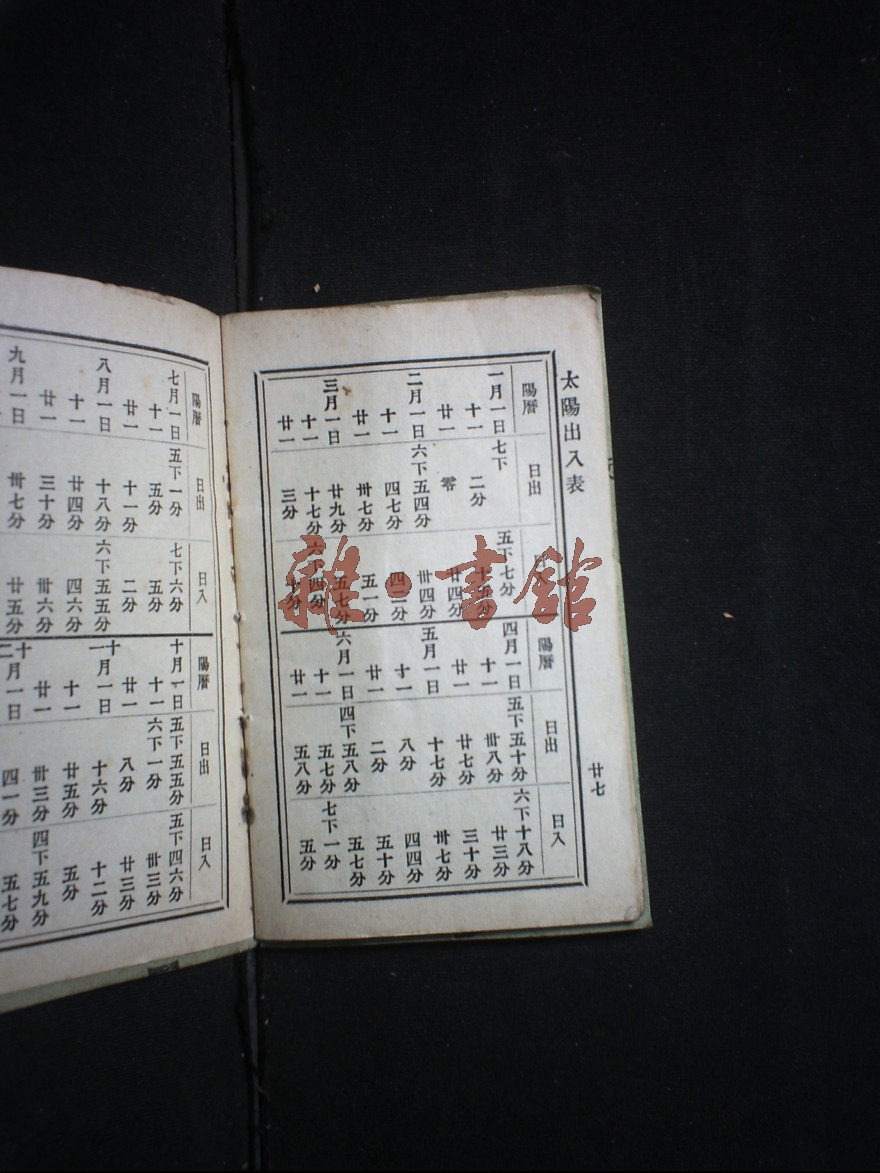 太陽出入表
廿七
陽曆 日出 日入
一月一日 七下 五下七分
十一 二分 十五分
廿一 零 廿四分
二月一日 六下五四分 卅四分
十一 四七分 四二分
廿一 卅七分 五一分
三月一日 廿九分 五七分
十一 十七分 六下四分
廿一 三分 十分
陽曆 日出 日入
四月一日 五下五十分 六下十八分
十一 卅八分 廿三分
廿一 廿七分 三十分
五月一日 十七分 卅七分
十一 八分 四四分
廿一 二分 五十分
六月一日 四下五八分 五七分
十一 五七分 七下一分
廿一 五八分 五分
陽曆 日出 日入
七月一日 五下一分 七下六分
十一 五分 五分
廿一 十一分 二分
八月一日 十八分 六下五五分
十一 廿四分 四六分
廿一 三十分 卅六分
九月一日 卅七分 廿五分
陽曆 日出 日入
十月一日 五下五五分 五下四六分
十一 六下一分 卅三分
廿一 八分 廿三分
十一月一日 十六分 十二分
十一 廿五分 五分
廿一 卅三分 四下五九分
十二月一日 四一分 五七分
雜·書館